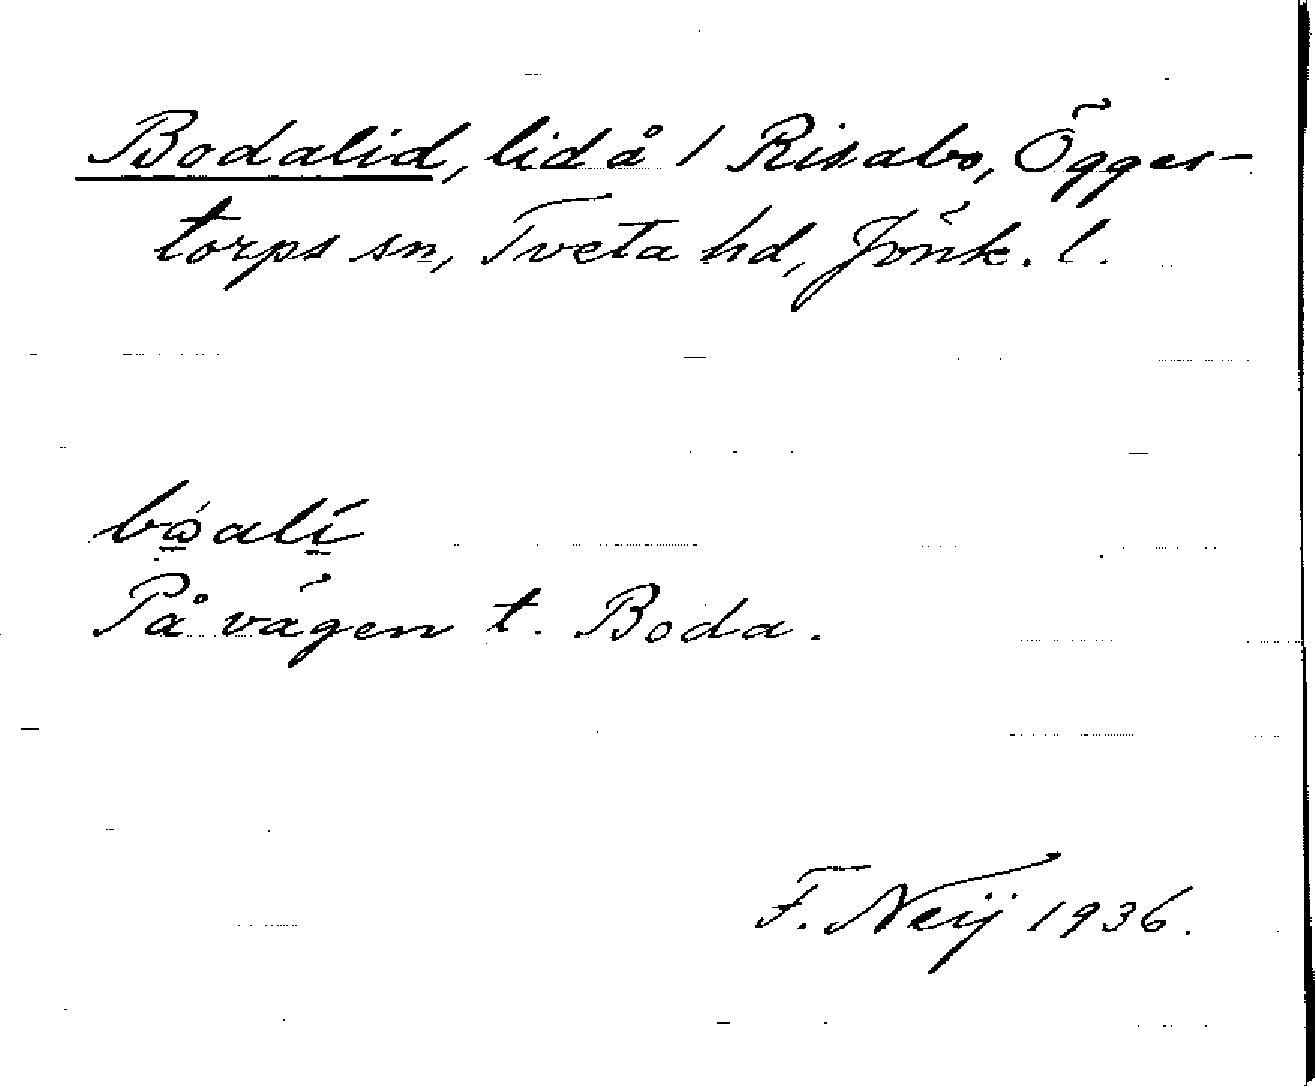 Bodalid, lid å 1 Risabo, Ögges-
torps sn, Tveta hd, Jönk. l.
bo̲´alí̲
På vägen t. Boda.
F. Neij 1936.